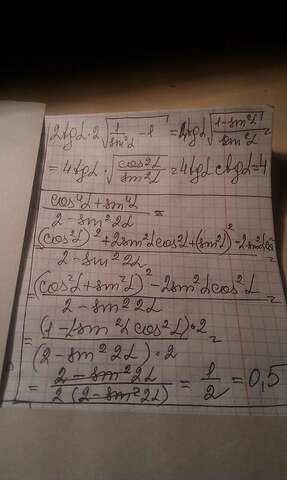 2tgα·2√(1/sin²α − 1) = 4tgα√((1−sin²α)/sin²α) =
= 4tgα·√(cos²α/sin²α) = 4tgα ctgα = 4
(cos⁴α + sin⁴α)/(2 − sin²2α) =
((cos²α)² + 2sin²αcos²α + (sin²α)² − 2sin²αcos²α)/(2 − sin²2α) =
= ((cos²α + sin²α)² − 2sin²αcos²α)/(2 − sin²2α) =
= ((1 − 2sin²αcos²α)·2)/((2 − sin²2α)·2) =
= (2 − sin²2α)/(2(2 − sin²2α)) = 1/2 = 0,5